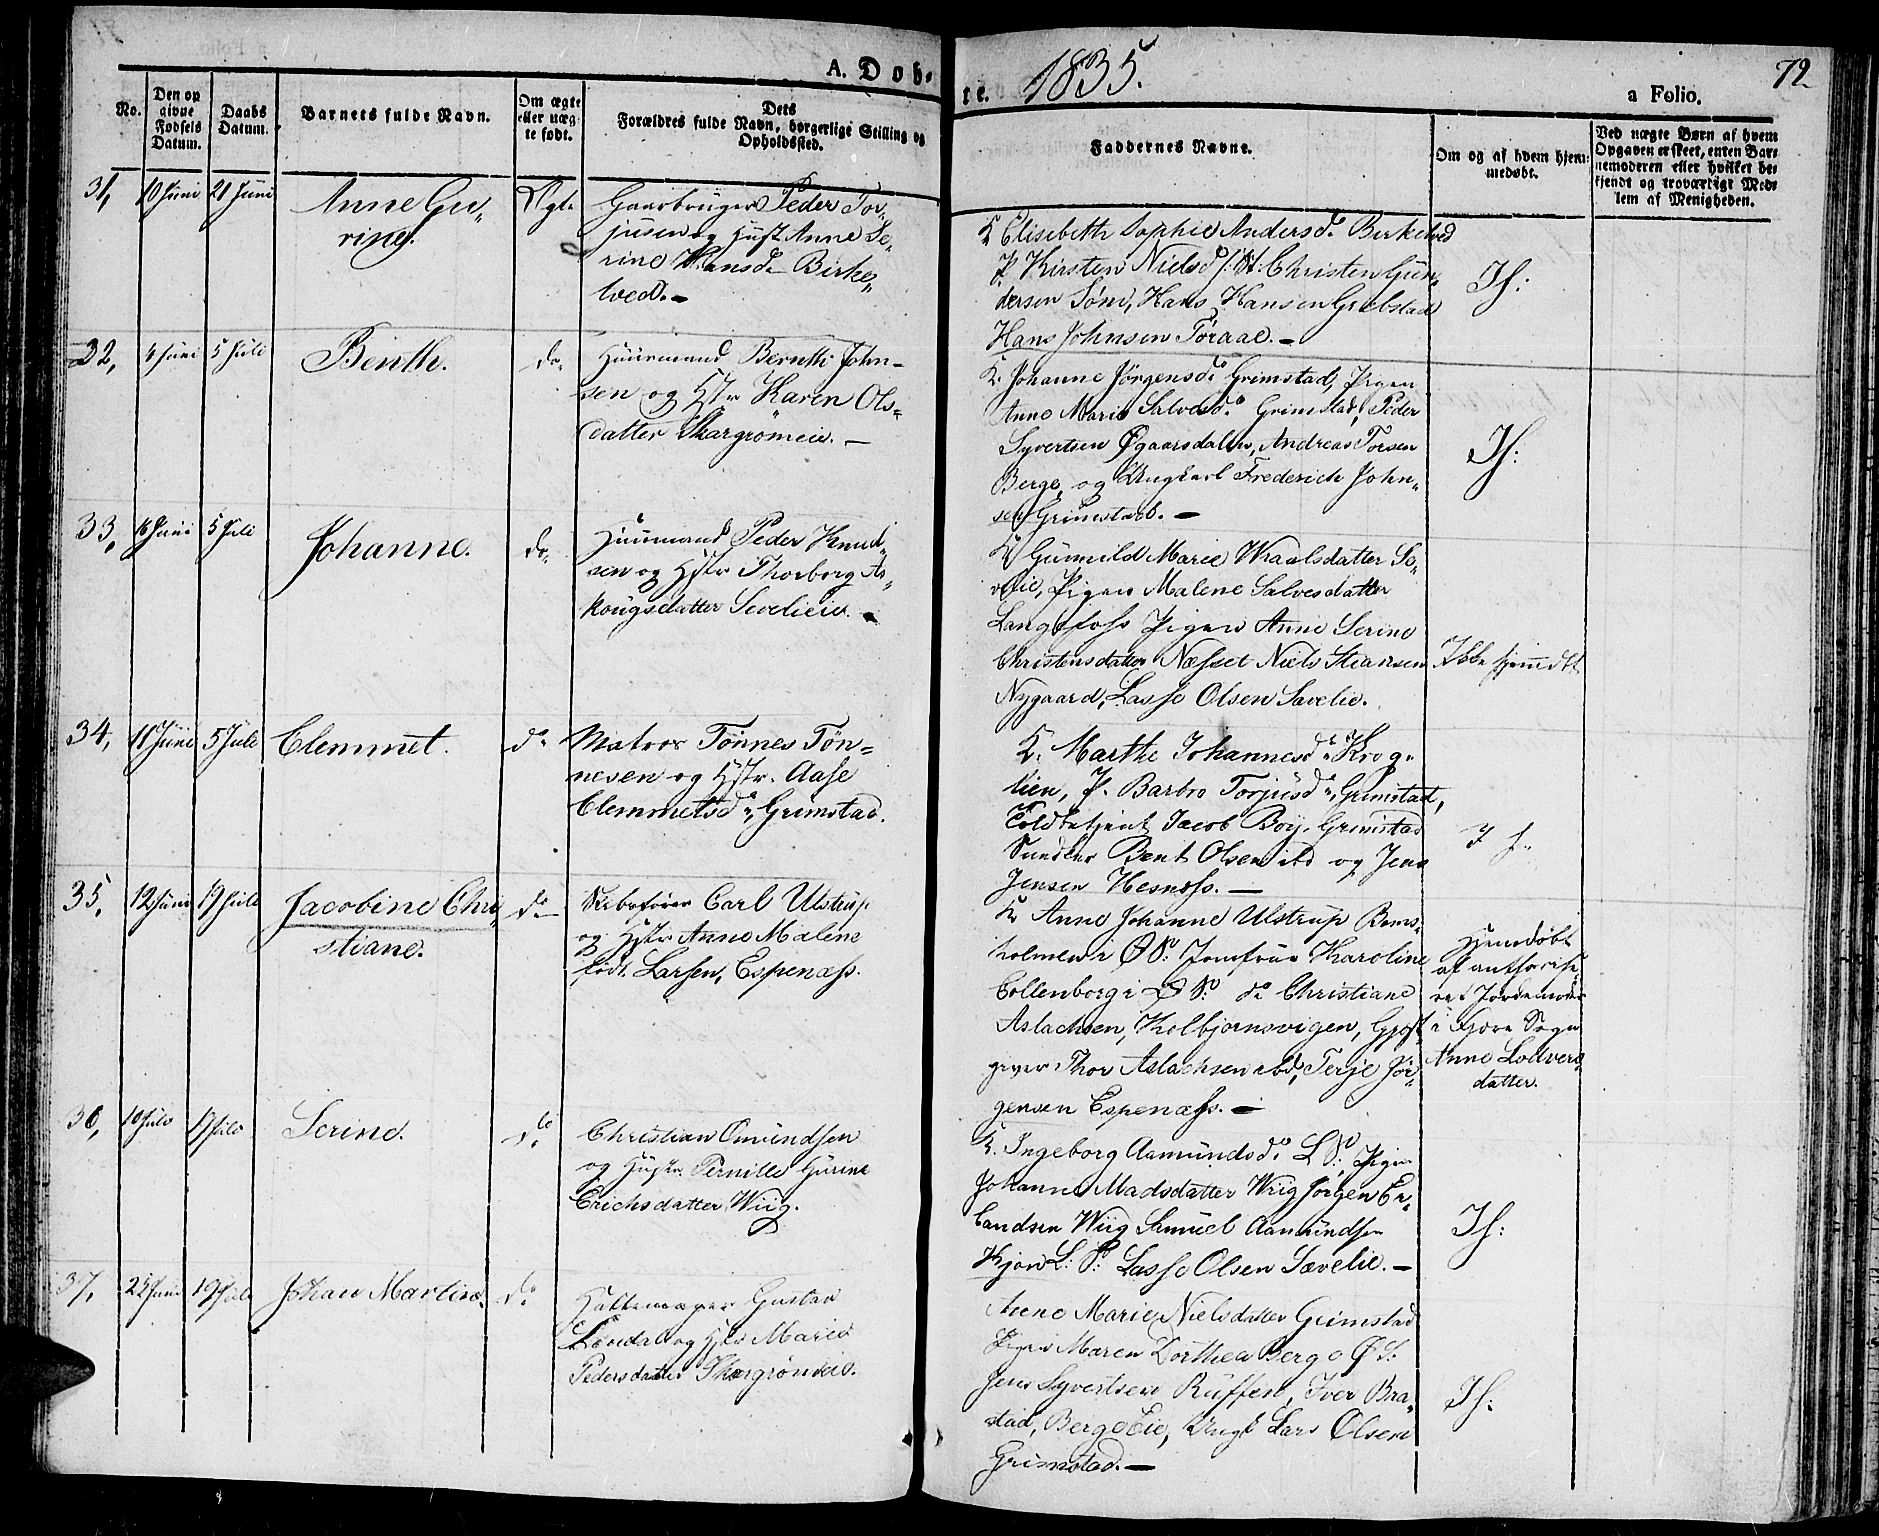 A. Dob-
te. 1835.
a Folio.
72.
No.
Den op
givne
Fødsels
Datum.
Daabs
Datum.
Barnets fulde Navn.
Om ægte
eller uæg-
te født.
Dets
Forældres fulde Navn, borgerlige Stilling og
Opholdssted.
Faddernes Navne.
Om og af hvem hjem-
medøbt.
Ved uægte Børn af hvem
Opgaven er skeet, enten Bar-
nemoderen eller hvilket be-
kjendt og troværdigt Med-
lem af Menigheden.
31, 10 Juni 21 Juni Anne Gu-
rine.
Ægte
Gaarbruger Peder Tor-
jusen og Hust Anne Se-
rine Hansd. Birke-
tved.-
K Elisebeth Sophie Andersd. Birketved
P. Kirsten Nielsd Christen Gun-
dersen Søm, Hans Hansen Grebstad
Hans Johnsen Toraae.-
If:
32, 4 Juni 5 Juli Benth. do-
Huusmand Bernth John-
sen og Hstr Karen Ols-
datter Skargrømeie.-
K. Johanne Jörgensd. Grimstad, Pigen
Anne Marie Salvesd. Grimstad, Peder
Syvertsen Øgaarsdalen, Andreas Torsen
Berge, og Ungkarl Frederich John-
sen Grimstad.-
If:
33, 16 Juni 5 Juli Johanne. do-
Huusmand Peder Knud-
sen og Hstr Thorborg As-
kougsdatter Sevelieie.
K Gunnild Marie Wraalsdatter Se-
velie, Pigen Malene Salvesdatter
Langefoss Pigen Anne Serine
Christensdatter Næsset Niels Steansen
Nygaard, Lasse Olsen Savelie.
Ikke hjemdt.
34, 11 Juni 5 Juli Clemmet. do
Matros Tönnes Tön-
nesen og Hstr. Aase
Clemmetsd. Grimstad.
K. Marthe Johannesd. Krog-
lien, P. Barbro Torjusd. Grimstad,
Toldbetjent Jacob Boy, Grimstad
Snedker Bent Olsen ibd og Jens
Jensen Hesnæss.-
If.
35, 12 Juni 19 Juli Jacobine Chri-
stiane.
do
Skibsfører Carl Ulstrup
og Hstr Anne Malene
født Larsen, Espenæss.
K Anne Johanne Ulstrup Rems-
holmen i Ø S: Jomfrue Karoline
Collenborg i Ø S: do Christiane
Aslachsen, Kolbjornsvigen, Gjæst-
giver Thor Aslachsen ibd, Terje Jör-
gensen Espenæss.-
Hjemdöbt
af authorise-
ret Jordemoder
i Fjære Sogn
Anne Lodvers-
datter.
36, 10 Julo 19 Julo Serine. do
Christian Omundsen
og Hustr Pernille Gurine
Erichsdatter Wiig.
K. Ingeborg Aamundsd. L S: Pigen
Johanne Madsdatter Wiig Jörgen Er-
landsen Wiig Samuel Aamundsen
Kjön L: S: Lasse Olsen Sævelie.-
If:
37, 25 Juni 19 Juli Johan Martin. do
Hattemager Gustav
Lendal og Hstr Marie
Pedersdatter Skargrönseie.
Anne Marie Nielsdatter Grimstad
Pigen Maren Dorthea Berge Ø S:
Jens Syvertsen Ruffen, Iver Bra-
stad, Berge Eie, Ungk Lars Olsen
Grimstad.-
If: